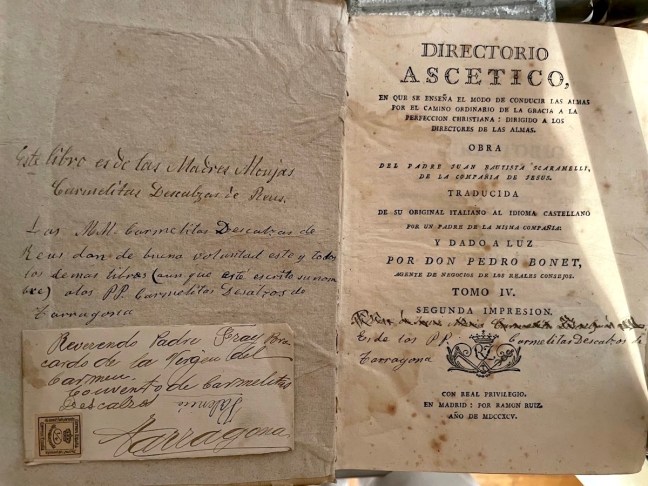 Este libro es de las Madres Monjas
Carmelitas Descalzas de Reus.
Las M.M. Carmelitas Descalzas de
Reus dan de buena voluntad este y todos
los demas libros (aunque esté escrito su nom
bre) a los PP. Carmelitas Descalzos de
Tarragona
Reverendo Padre Fray Bro
cardo de la Virgen del
Carmen
Convento de Carmelitas
Descalzos
Palencia
Tarragona
DIRECTORIO
ASCETICO,
EN QUE SE ENSEÑA EL MODO DE CONDUCIR LAS ALMAS
POR EL CAMINO ORDINARIO DE LA GRACIA A LA
PERFECCION CHRISTIANA: DIRIGIDO A LOS
DIRECTORES DE LAS ALMAS.
OBRA
DEL PADRE JUAN BAUTISTA SCARAMELLI,
DE LA COMPAÑIA DE JESUS.
TRADUCIDA
DE SU ORIGINAL ITALIANO AL IDIOMA CASTELLANO
POR UN PADRE DE LA MISMA COMPAÑIA:
Y DADO A LUZ
POR DON PEDRO BONET,
AGENTE DE NEGOCIOS DE LOS REALES CONSEJOS.
TOMO IV.
SEGUNDA IMPRESION.
Es de los PP. Carmelitas Descalzos de
Tarragona
RZ
CON REAL PRIVILEGIO.
EN MADRID: POR RAMON RUIZ.
AÑO DE MDCCXCV.